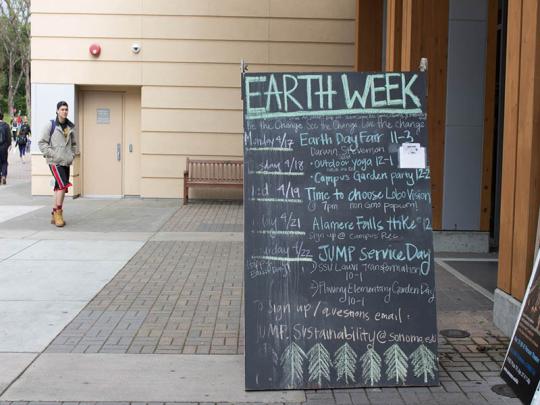 EARTH WEEK
Be the Change See the Change Love the change
Monday 4/17 Earth Day Fair 11-3
Darwin Stevenson
sday 4/18 • outdoor yoga 12-1
• Campus Garden party 12-2
d 4/19 Time to choose Lobo Vision
7pm non GMO popcorn!
4/21 Alamere Falls Hike 12
sign up @ campus Rec
urday 4/22 JUMP Service Day
1) SSU Lawn Transformation
10-1
2) Flowery Elementary Garden Day
10-1
Sign up / questions email:
JUMP.Sustainability@sonoma.edu